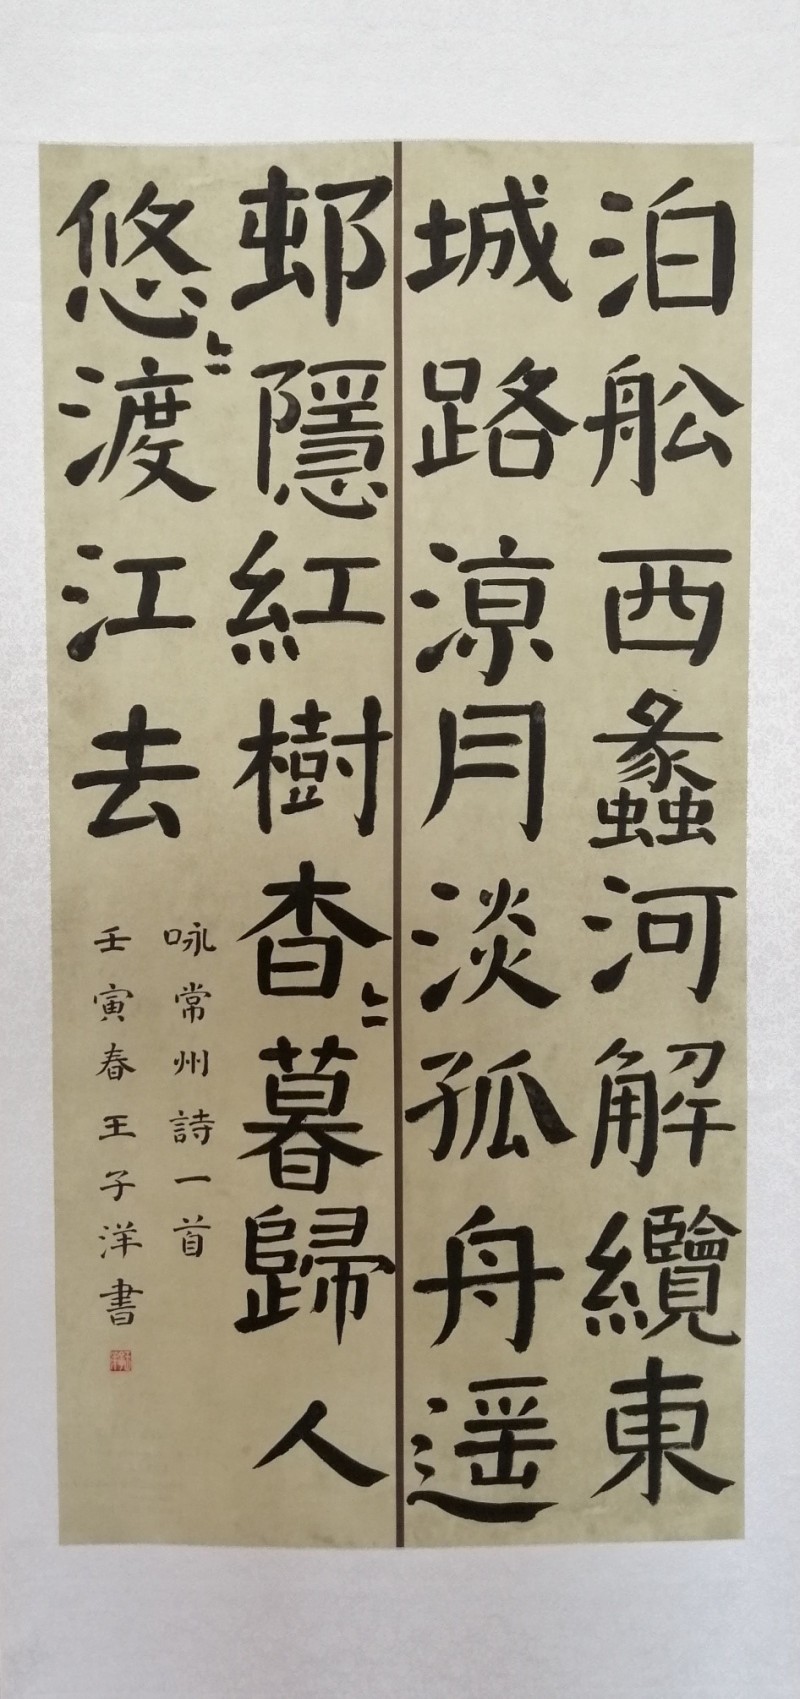 泊舩西蠡河解纜東
城路涼月淡孤舟遥
邨隱紅樹杳〻暮歸人
悠〻渡江去
咏常州詩一首
壬寅春王子洋書